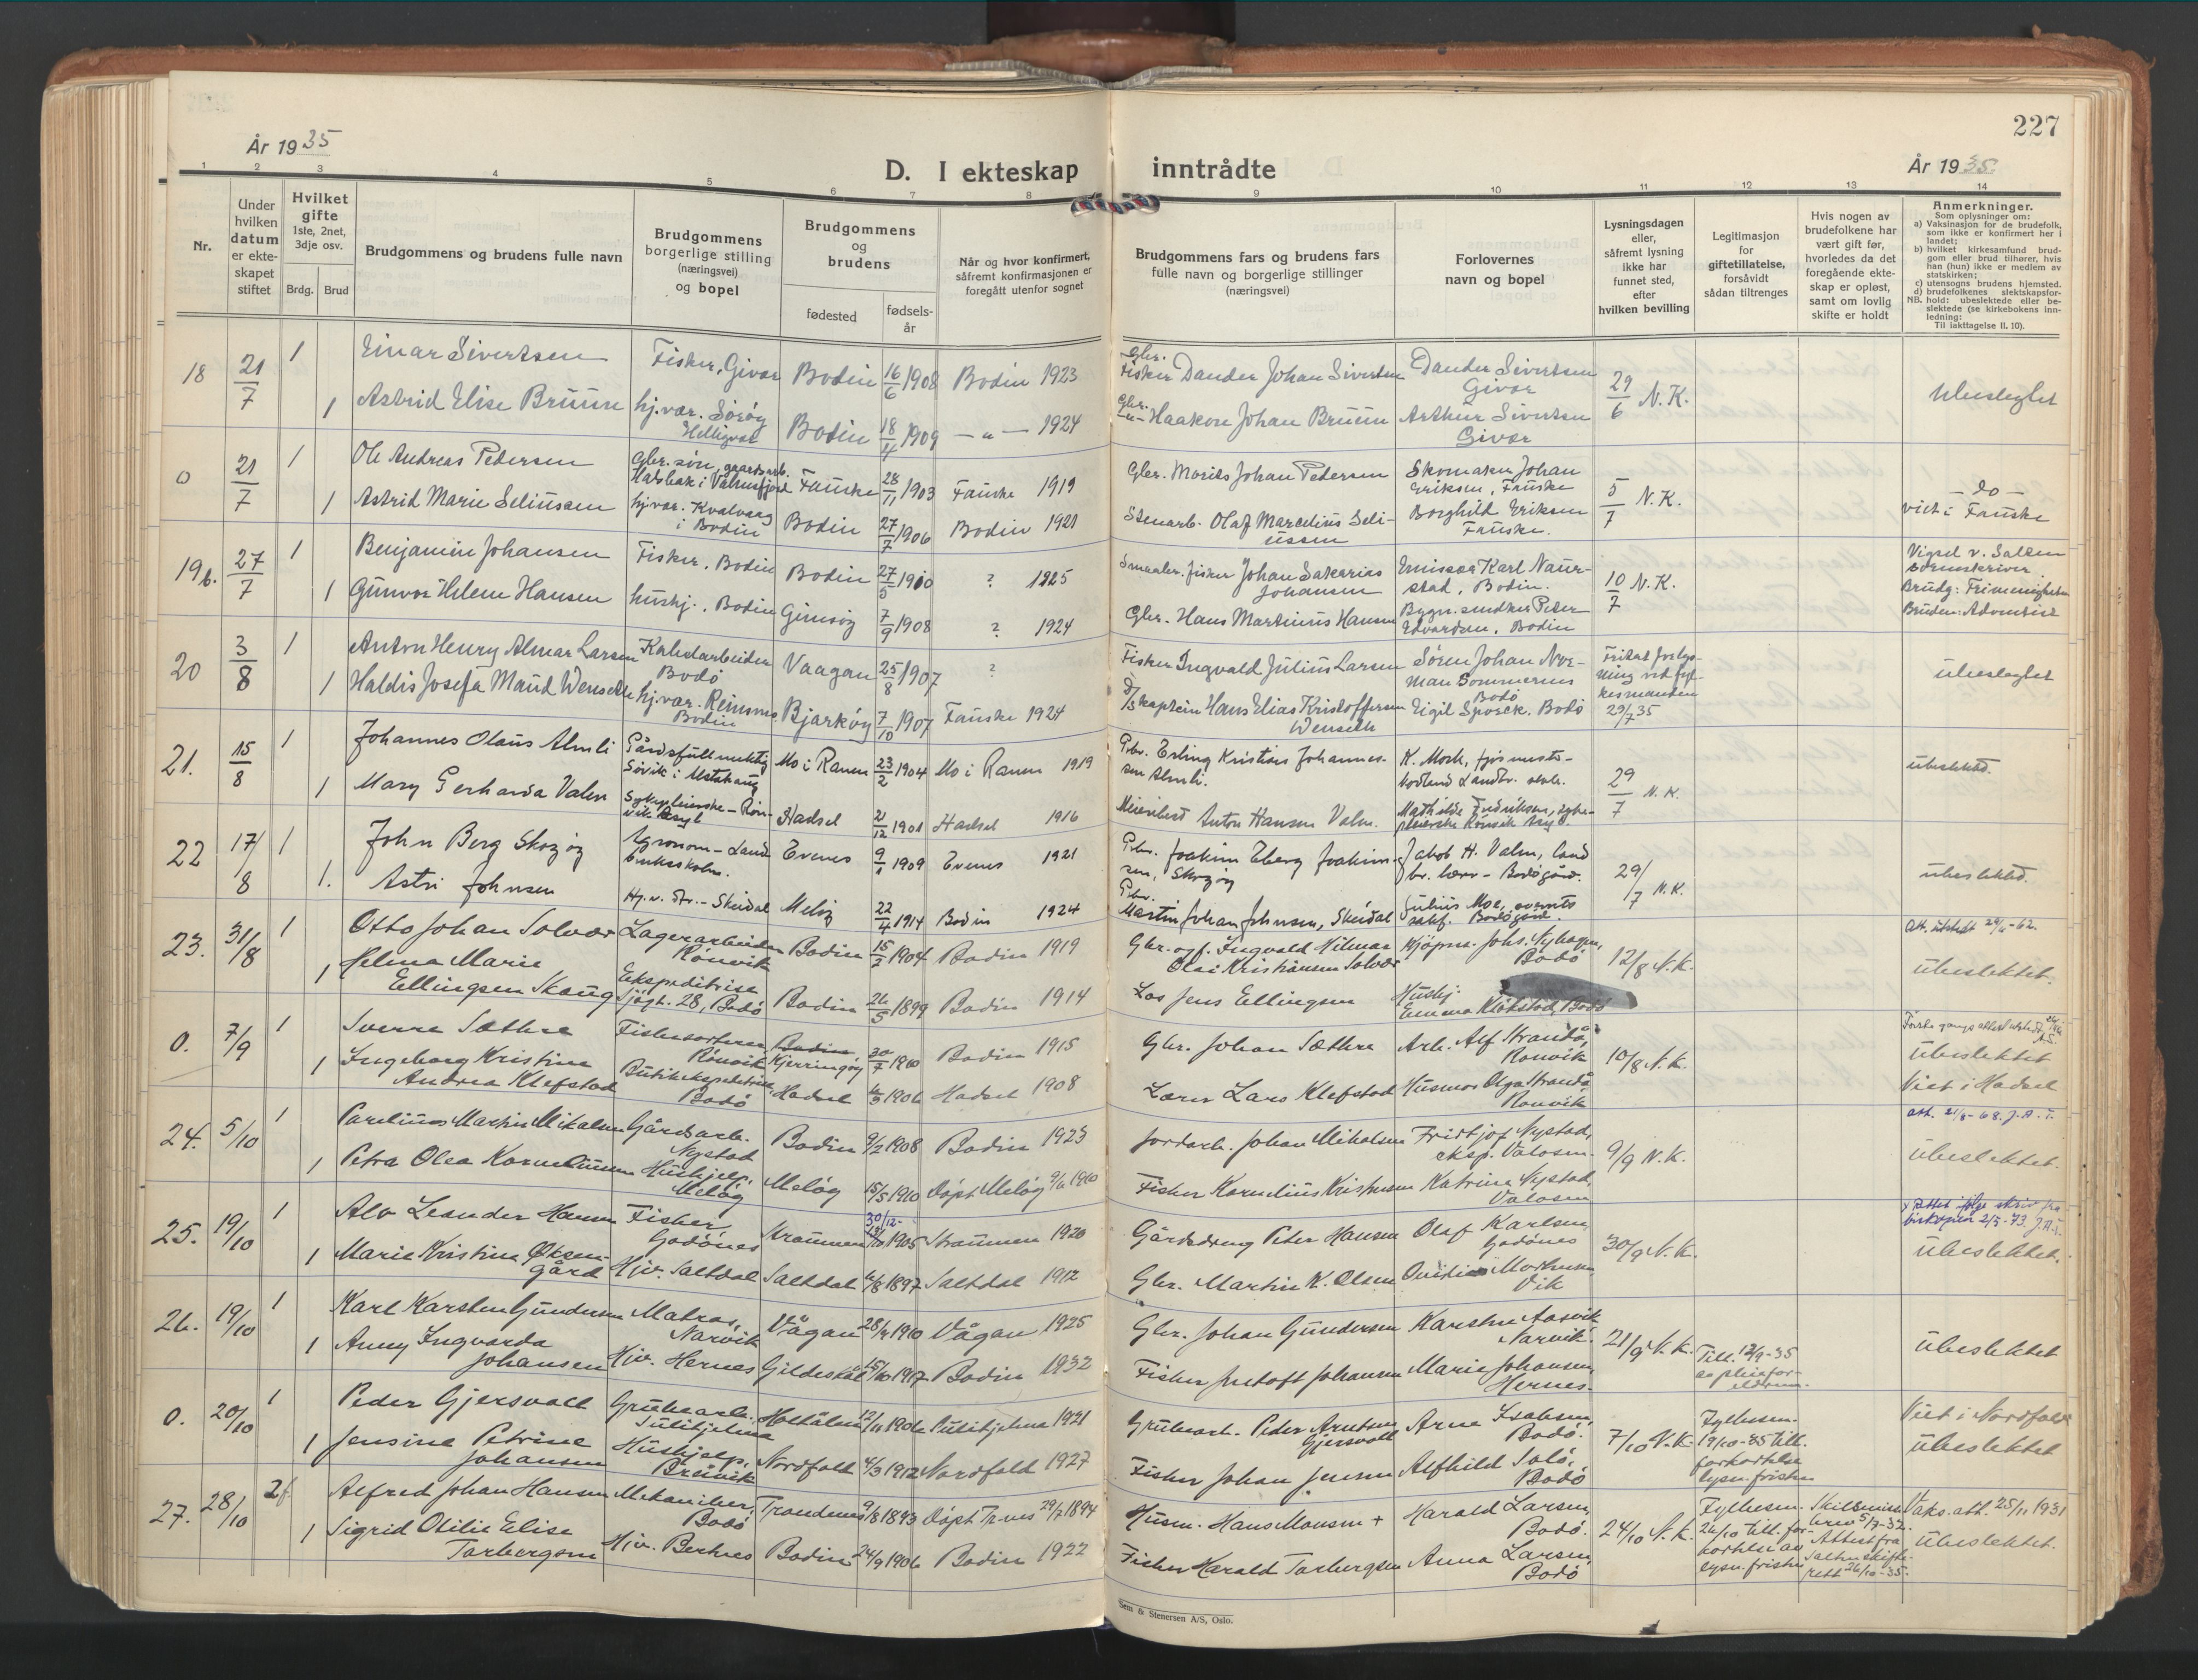 227
År 1935
D. I ekteskap inntrådte
År 1935
1 2 3 4 5 6 7 8 9 10 11 12 13 14
Nr.
Under hvilken datum er ekteskapet stiftet
Hvilket gifte 1ste, 2net, 3dje osv.
Brdg. Brud
Brudgommens og brudens fulle navn
Brudgommens borgerlige stilling (næringsvei) og bopel
Brudgommens og brudens
fødested
fødselsår
Når og hvor konfirmert, såfremt konfirmasjonen er foregått utenfor sognet
Brudgommens fars og brudens fars fulle navn og borgerlige stillinger (næringsvei)
Forlovernes navn og bopel
Lysningsdagen eller, såfremt lysning ikke har funnet sted, efter hvilken bevilling
Legitimasjon for giftetillatelse, forsåvidt sådan tiltrenges
Hvis nogen av brudefolkene har vært gift før, hvorledes da det foregående ekteskap er opløst, samt om lovlig skifte er holdt
Anmerkninger.
Som oplysninger om:
a) Vaksinasjon for de brudefolk, som ikke er konfirmert her i landet;
b) hvilket kirkesamfund brudgom eller brud tilhører, hvis han (hun) ikke er medlem av statskirken;
c) utensogns brudens hjemsted.
d) brudefolkenes slektskapsforhold: ubeslektede eller beslektede (se kirkebokens innledning:
NB. Til iakttagelse II. 10).
18 21/7 1 Einar Sivertsen Fisker, Givær Bodin 16/6 1908 Bodin 1923 Gbr. Fisker Dander Johan Sivertsen Dander Sivertsen Givær 29/6 N.K. Ubeslegtet
1 Astrid Elise Bruun hj.vær. Sørøy Helligvær Bodin 18/4 1909 — " — 1924 Gbr. Haakon Johan Bruun Arthur Sivertsen Givær
0 21/7 1 Ole Andreas Pedersen Gbr. søn, gaardsarb. i Valnesfjord Fauske 28/11 1903 Fauske 1919 Gbr. Morits Johan Petersen Skomaker Johan Eriksen, Fauske 5/7 N.K. — do — viet i Fauske
1 Astrid Marie Seliussen hj.vær. Kvalvaag i Bodin Bodin 27/7 1906 Bodin 1921 Stenarb. Olaf Marcelius Seliussen Borghild Eriksen Fauske.
19b. 27/7 1 Benjamin Johansen Fisker, Bodin Bodin 27/5 1910 ? 1925 Smaabr. fisker Johan Sakarias Johansen Emissær Karl Naurstad, Bodin. 10/7 N.K. Vigsel v. Salten sorenskriver Brudg: Frimenigheten Bruden: Adventist
1 Gunvor Helene Hansen hushj., Bodin Gimsøy 7/9 1908 ? 1924 Gbr. Hans Martinius Hansen Bygn.snedker Peter Edvardsen, Bodin
20 3/8 1 Anton Henry Almar Larsen Kabelarbeider Bodø Vaagan 25/8 1907 ? Fisker Ingvald Julius Larsen Søren Johan Norman Sommernes Bodø Fritatt for lysning ved fylkesmanden 29/7 35 ubeslegtet
1 Haldis Josefa Maud Wenselle hj.vær. Reinsnes Bodin Bjarkøy 7/10 1907 Fauske 1924 D/S kaptein Hans Elias Kristoffersen Wenselle Eigil Spørck. Bodø
21. 15/8 1 Johannes Olaus Almli Gårdsfullmektig Søvik i Alstahaug Mo i Ranen 23/2 1904 Mo i Ranen 1919 Gbr. Erling Kristian Johannessen Almli. K. Mock, fjøsmester Nordland Landbr. skole. 29/7 N.K. ubeslektet.
1 Mary Gerharda Valen Sykepleierske — Rønvik Asyl Hadsel 21/12 1901 Hadsel 1916 Meieribest. Anton Hansen Valen. Mathilde Fredriksen, sykepleierske Rønvik Asyl
22 17/8 1 John Berg Skogøy Agronom — Landbruksskolen. Evenes 9/1 1909 Evenes 1921 Gbr. Joakim Eberg Joakimsen, Skogøy Jakob H. Valen, landbr. lærer — Bodøgård. 29/7 N.K. ubeslektet.
1. Astri Johnsen Hj.v. dtr. — Skeidal Meløy 22/4 1914 Bodin 1924 Gbr. Martin Johan Johnsen, Skeidal Julius Moe, Bodøgård.
23. 31/8 1 Otto Johan Solvær Lagerarbeider Rønvik Bodin 15/2 1904 Bodin 1919 Gbr. og f. Ingvald Hilmar Olai Kristiansen Solvær Kjøpm. Johs. Nyhagen, Bodø 12/8 N.K. Att. utstedt 29/11-62. ubeslektet.
1 Helena Marie Ellingsen Skaug Ekspeditrise Sjøgt. 28, Bodø Bodin 26/5 1899 Bodin 1914 Los Jens Ellingsen Hushj. Emma Klökstad, Bodø
0. 7/9 1 Sverre Sæthre Fiskesorterer Rönvik Bodin Kjerringøy 30/7 1900 Bodin 1915 Gbr. Johan Sæthre Arb. Alf Strandå, Rønvik 10/8 N.K. ubeslektet Viet i Hadsel
1 Ingeborg Kristine Andrea Klefstad Butikekspeditrise Bodø Hadsel 1906 Hadsel 1908 Lærer Lars Klefstad Husmor Olga Strandå Rønvik
24. 5/10 1 Parelius Martin Mikalsen Gårdsarb. Nystad Bodin 9/2 1908 Bodin 1923 Jordarb. Johan Mikalsen Fridtjof Nystad, eksp. Vatosen 9/9 N.K. Att. 21/8-68. J.A.T. ubeslektet.
1 Petra Olea Korneliussen Hushjelp, Meløy Meløy 15/5 1910 Døpt Meløy 9/6 1910 Fisker Kornelius Kristensen Katrine Nystad, Vatosen
25. 19/10 1 Alv Leander Hansen Fisker, Godönes Straumen 30/12- 1905 Straumen 1920 Gårdsdreng Peter Hansen Olaf Karlsen, Godönes 30/9 N.K. x rettet ifølge skriv fra bispen 2/5-73. J.A.T. ubeslektet.
1 Marie Kristine Øksengård Hjv. Saltdal Saltdal 4/8 1897 Saltdal 1912 Gbr. Martin K. Olsen Ovidia Morhus Vik
26. 19/10 1 Karl Karsten Gundersen Matros, Narvik Vågan 28/4 1910 Vågan 1925 Gbr. Johan Gundersen Karsten Aasvik Narvik. 21/9 N.K. Till. 12/9-35 av pleieforeldrene. ubeslektet
1 Anny Ingvarda Johansen Hjv. Hernes Gildeskål 15/10 1917 Bodin 1932 Fisker Justoft Johansen Marie Johansen, Hernes.
0. 20/10 1 Peder Gjersvoll Grubearb. Sulitjelma Holtålen 12/11 1906 Sulitjelma 1921 Grubearb. Peder Arntsen Gjersvoll Arne Isaksen, Bodø. 7/10 N.K. Fylkesm. 19/10-35 till. forkortelse lysn.fristen Viet i Nordfold ubeslektet
1 Jensine Petrine Johansen Hushjelp, Breivik Nordfold 4/3 1912 Nordfold 1927 Fisker Johan Jensen Alfhild Solö, Bodø
27. 28/10 2f. Alfred Johan Hansen Mekaniker, Bodø Trondenes 9/8 1893 Døpt Tr-nes 29/7 1894 Husm. Hans Monsen + Harald Larsen, Bodø. 24/10 N.K. Fylkesm. 26/10 till. forkortelse av lysn.fristen Skilsmissebrev 5/7-32. Attest fra Salten skifterett 26/10-35. Vaks.att. 25/11 1931 ubeslektet.
1 Sigrid Otilie Elise Torbergsen Hjv. Bertnes Bodin 24/9 1906 Bodin 1922 Fisker Harald Torbergsen Anna Larsen, Bodø
Sem & Stenersen A/S, Oslo.